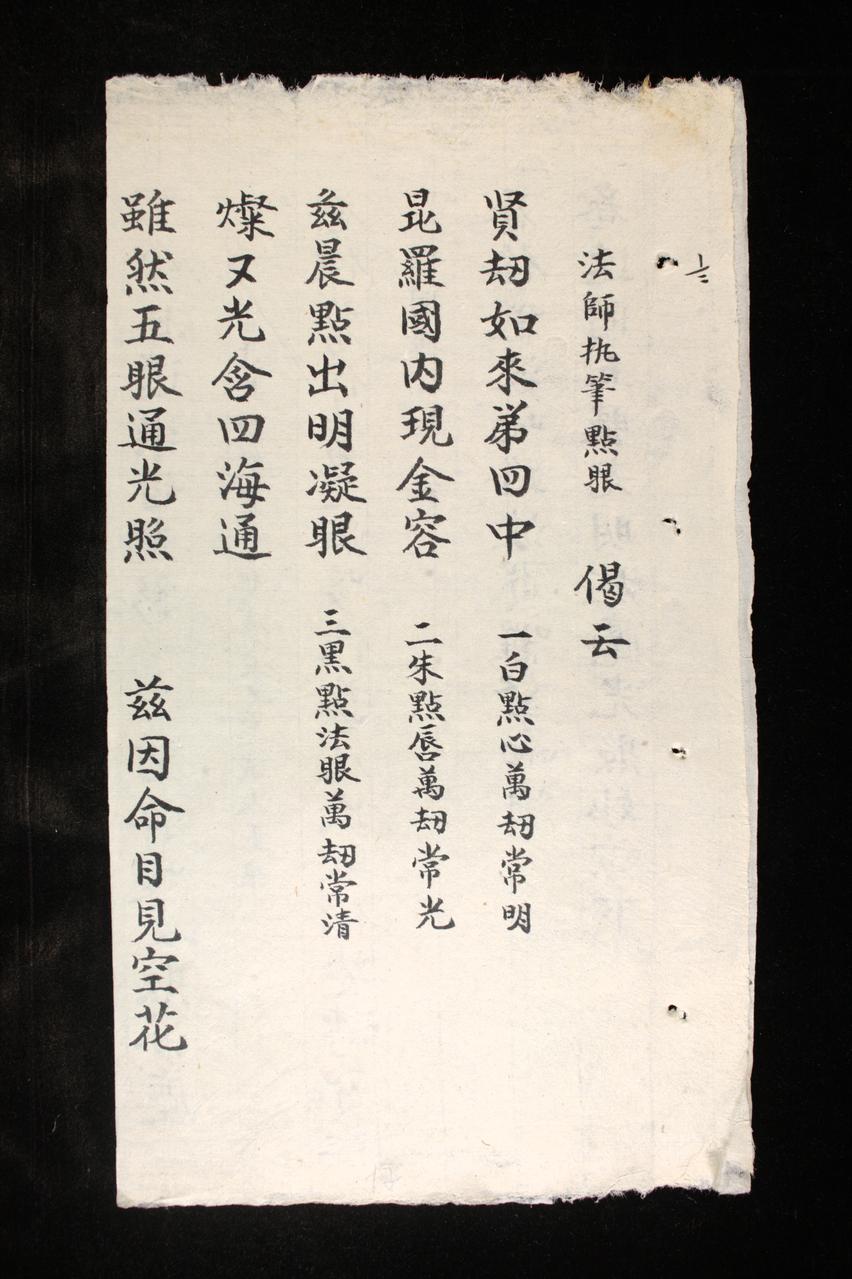 法師执筆點眼　偈云
贤刼如來苐四中　一白點心萬刼常明
昆羅國内現金容　二朱點唇萬刼常光
兹晨點出明凝眼　三黑點法眼萬刼常清
燦又光含四海通
雖然五眼通光照　兹因命目見空花